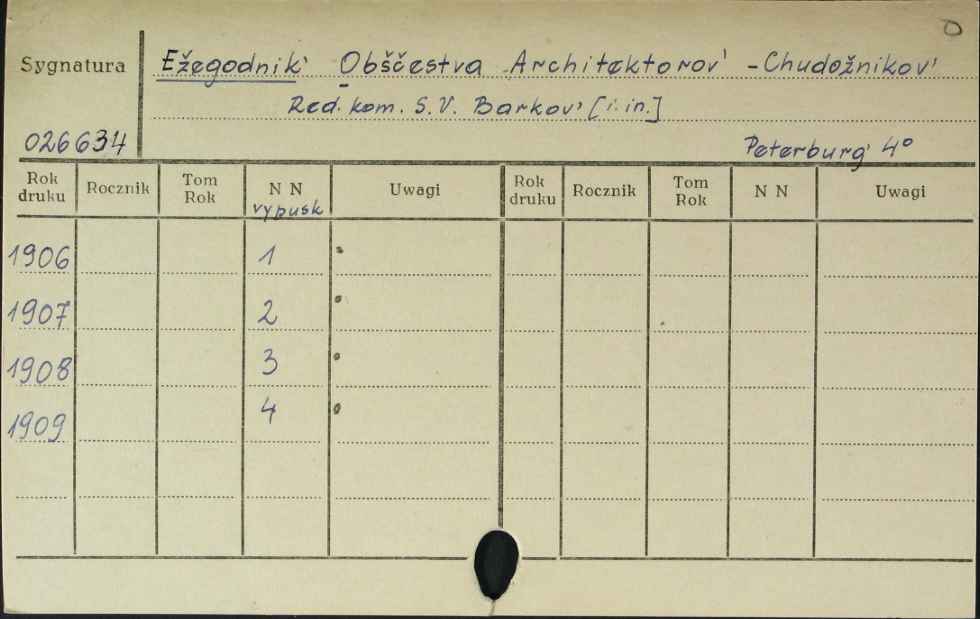 D
Sygnatura Ežegodnik' Obščestva Architektorov' - Chudožnikov'
Red. kom. S.V. Barkov' [i in.]
026634 Peterburg' 4°
Rok druku Rocznik Tom Rok N N vypusk Uwagi Rok druku Rocznik Tom Rok N N Uwagi
1906 1
1907 2
1908 3
1909 4